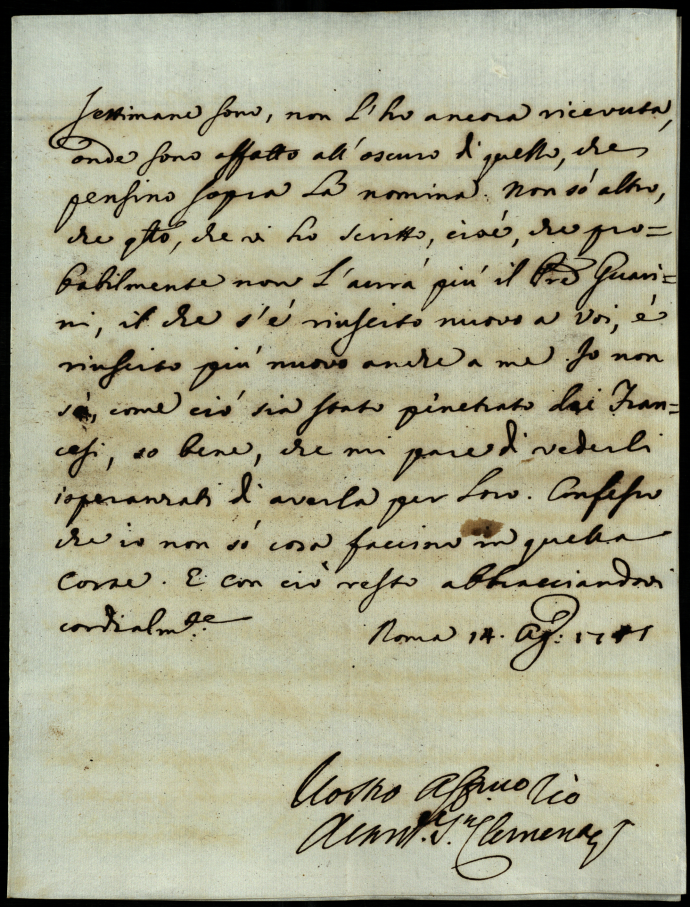 settimane sono, non l'ho ancora ricevuta,
onde sono affatto all'oscuro di quello, che
pensino sopra la nomina. Non só altro,
che qto, che vi ho scritto, cioé, che pro=
babilmente non l'aurá piú il Pre Guari=
ni, il che s'é riuscito nuovo a voi, é
riuscito piú nuovo anche a me. Io non
só, come ció sia stato penetrato dai Fran=
cesi, so bene, che mi pare di vederli
isperanzati di averla per loro. Confesso
che io non só cosa faccino in quella
Corte. E con ció resto abbracciandovi
cordialmte.
Roma 14. Ag: 1741
Vostro affmo Zio